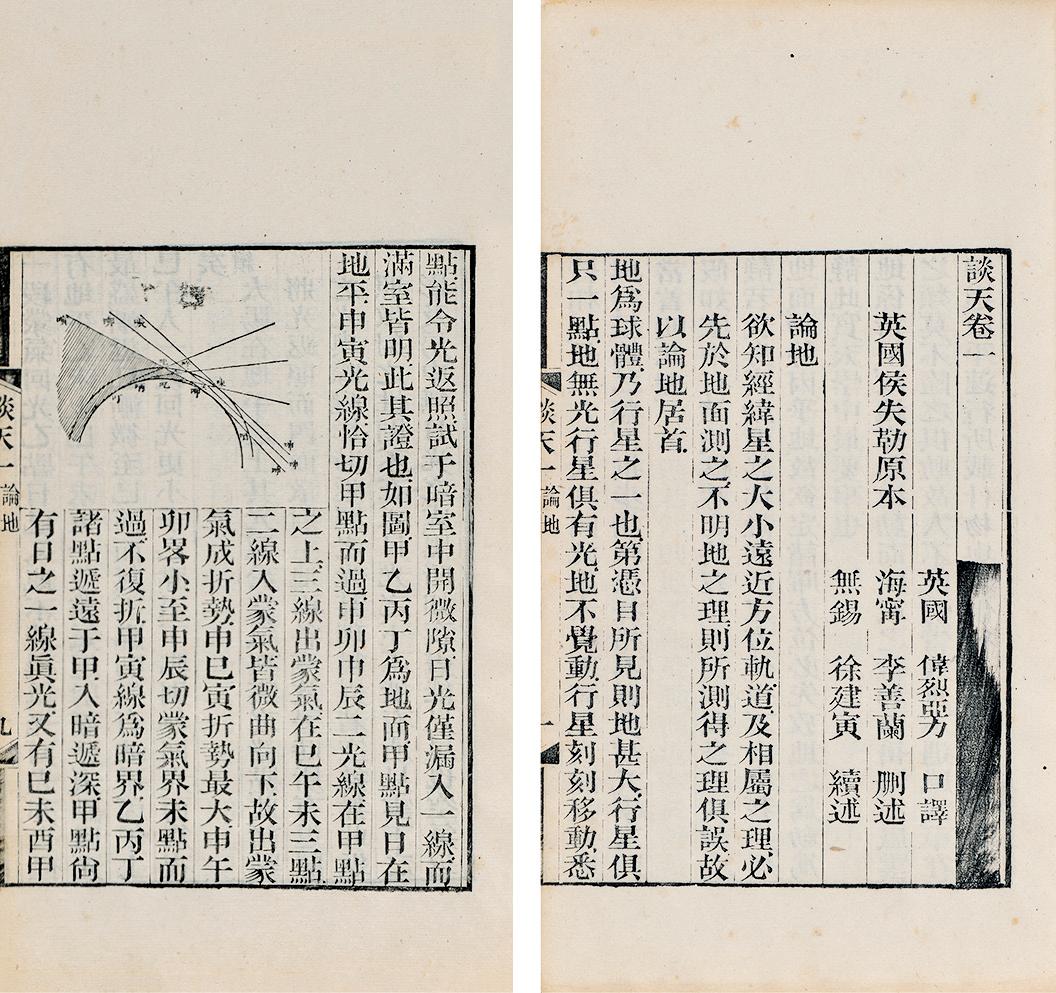 談天卷一
英國侯失勒原本
英國 偉烈亞力 口譯
海甯 李善蘭 刪述
無錫 徐建寅 續述
論地
欲知經緯星之大小遠近方位軌道及相屬之理必
先於地面測之不明地之理則所測得之理俱誤故
以論地居首
地爲球體乃行星之一也第憑目所見則地甚大行星俱
只一點地無光行星俱有光地不覺動行星刻刻移動悉
談天一 論地 一
點能令光返照試于暗室中開微隙日光僅漏入一線而
滿室皆明此其證也如圖甲乙丙丁爲地面甲點見日在
地平申寅光線恰切甲點而過申卯申辰二光線在甲點
之上三線出蒙氣在巳午未三點
三線入蒙氣皆微曲向下故出蒙
氣成折勢申巳寅折勢最大申午
卯畧小至申辰切蒙氣界未點而
過不復折甲寅線爲暗界乙丙丁
諸點遞遠于甲入暗遞深甲點尙
有日之一線眞光又有巳未酉甲
談天一 論地 九